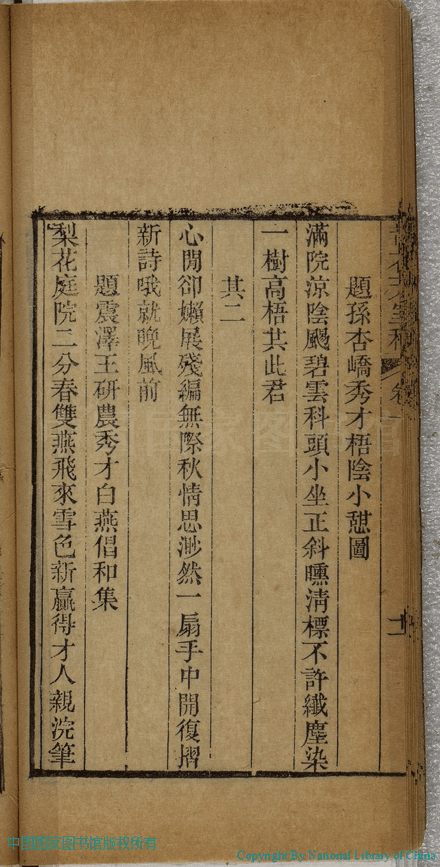 題孫杏嶠秀才梧陰小憇圖
滿院涼陰颺碧雲科頭小坐正斜曛淸標不許纖塵染
一樹高梧其此君
其二
心閒卻嬾展殘編無際秋情思渺然一扇手中開復摺
新詩哦就晚風前
題震澤王硏農秀才白燕倡和集
梨花庭院二分春雙燕飛來雪色新贏得才人親浣筆
中国国家图书馆版权所有
Copyright By National Library of China